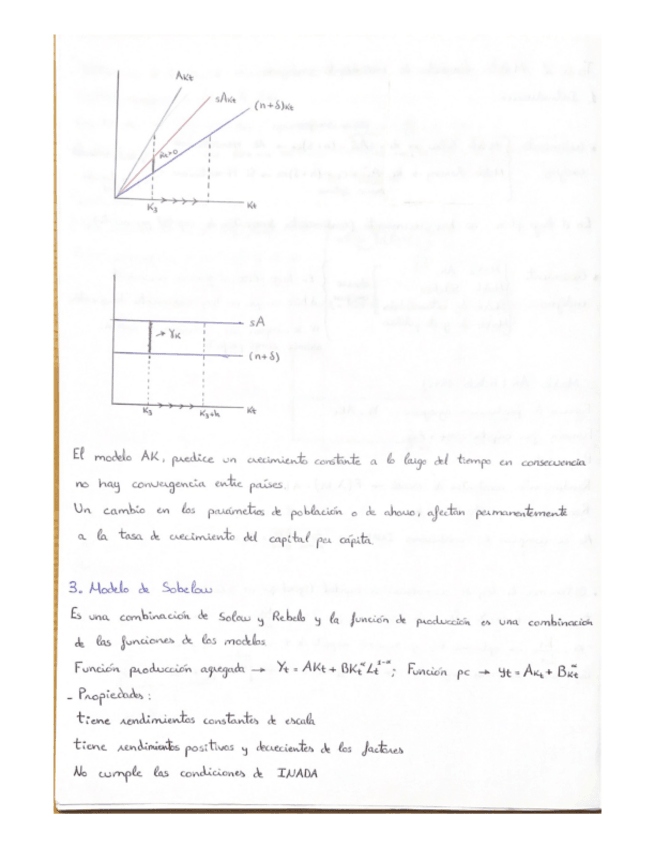 AKt
sAKt
(n+δ)Kt
γk>0
K3
Kt
sA
→ γK
(n+δ)
K3
K3+h
Kt
El modelo AK, predice un crecimiento constante a lo largo del tiempo en consecuencia
no hay convergencia entre países.
Un cambio en los parámetros de población o de ahorro, afectan permanentemente
a la tasa de crecimiento del capital per cápita
3. Modelo de Sobelow
Es una combinación de Solow y Rebelo y la función de producción es una combinación
de las funciones de los modelos
Función producción agregada → Yt = AKt + BKt^α Lt^1-α; Función pc → yt = AKt + BKt^α
- Propiedades:
tiene rendimientos constantes de escala
tiene rendimientos positivos y decrecientes de los factores
No cumple las condiciones de INADA